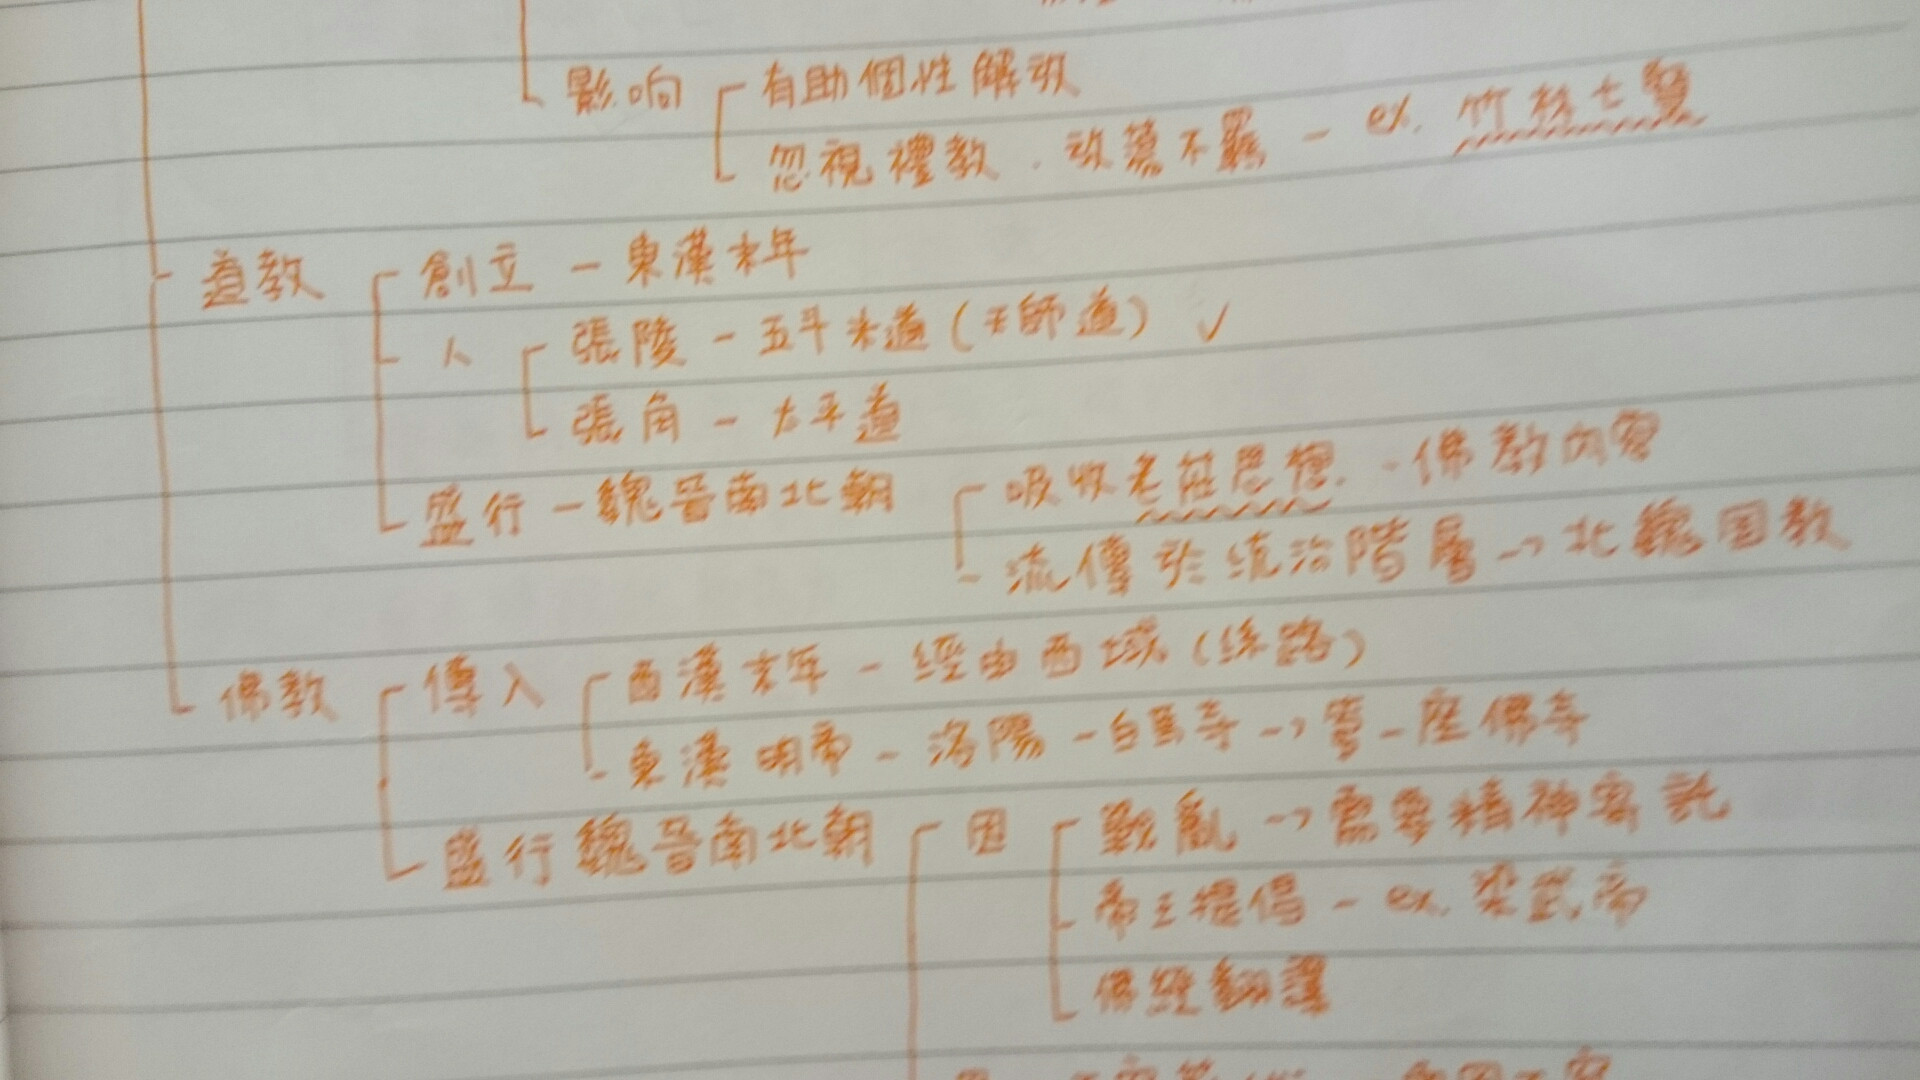 影响 有助個性解放
忽視禮教、放蕩不羈 - ex. 竹林七賢
道教 創立 - 東漢末年
人 張陵 - 五斗米道 (天師道) ✓
張角 - 太平道
盛行 - 魏晉南北朝 吸收老莊思想、佛教內容
流傳於統治階層 → 北魏国教
佛教 傳入 西漢末年 - 經由西域 (絲路)
東漢明帝 - 洛陽 - 白馬寺 → 第一座佛寺
盛行 魏晉南北朝 因 戰亂 → 需要精神寄託
帝王提倡 - ex. 梁武帝
佛經翻譯